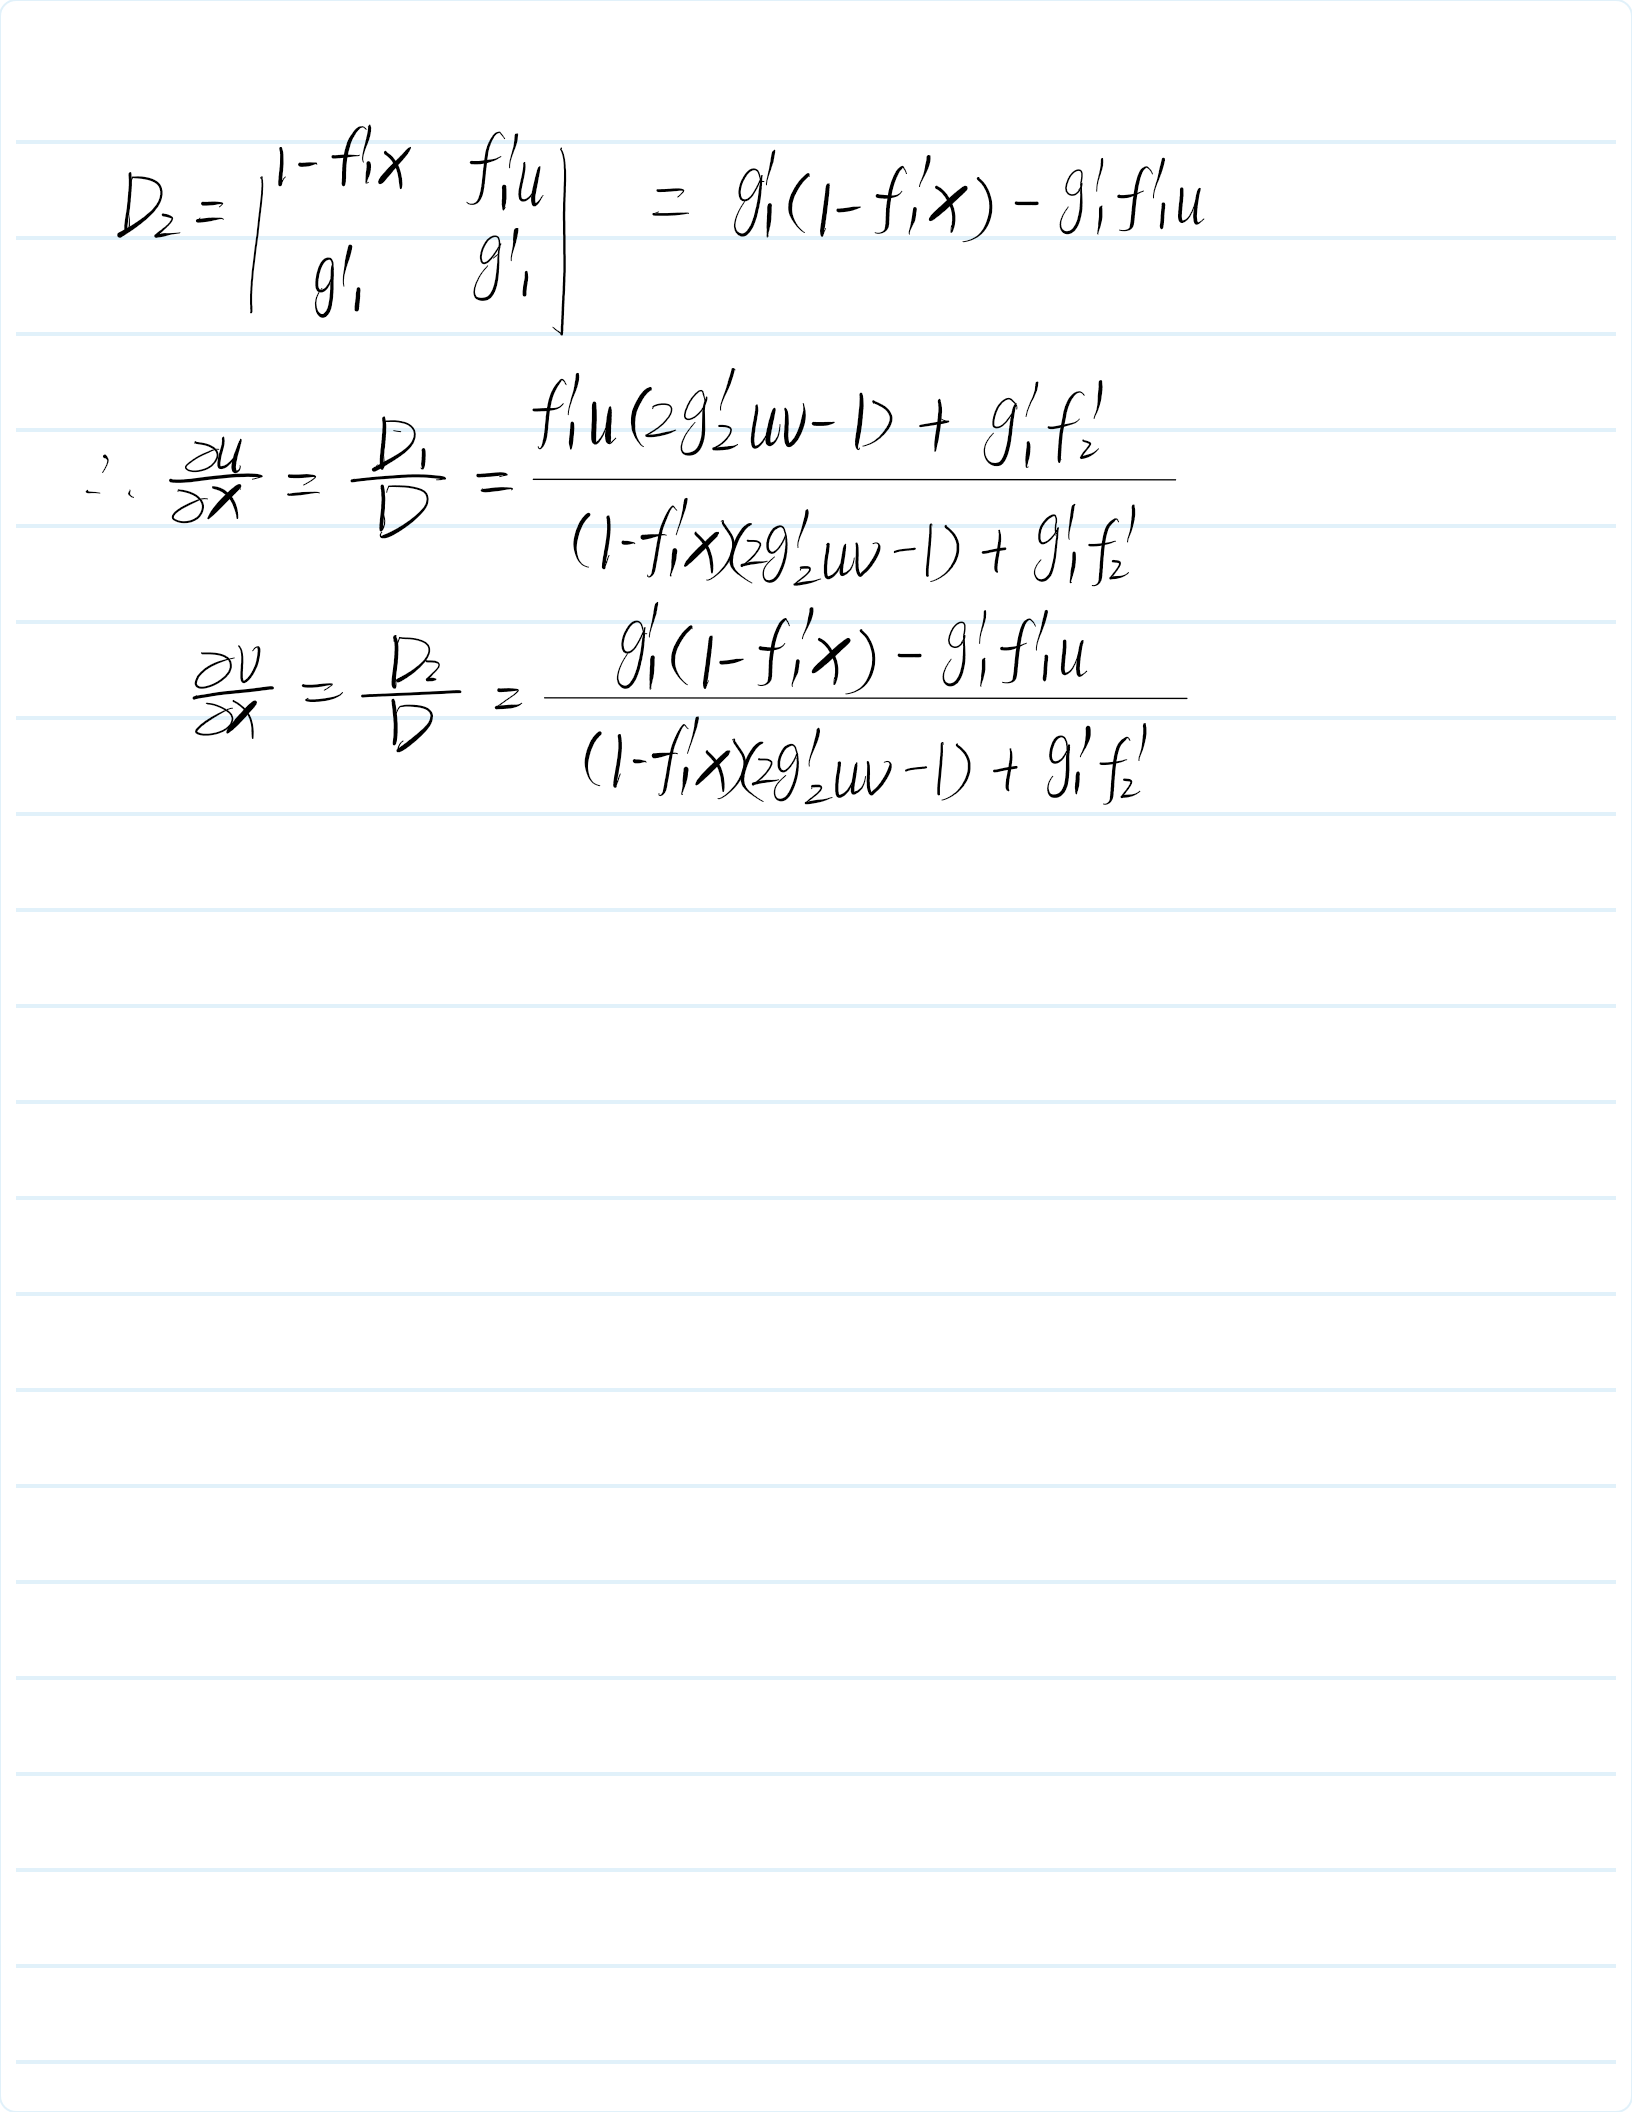 D₂ = | 1-f'₁x  f'₁u ; g'₁  g'₁ | = g'₁(1-f'₁x) - g'₁f'₁u
∴ ∂u/∂x = D₁/D = (f'₁u(2g'₂uv-1) + g'₁f'₂) / ((1-f'₁x)(2g'₂uv-1) + g'₁f'₂)
∂v/∂x = D₂/D = (g'₁(1-f'₁x) - g'₁f'₁u) / ((1-f'₁x)(2g'₂uv-1) + g'₁f'₂)